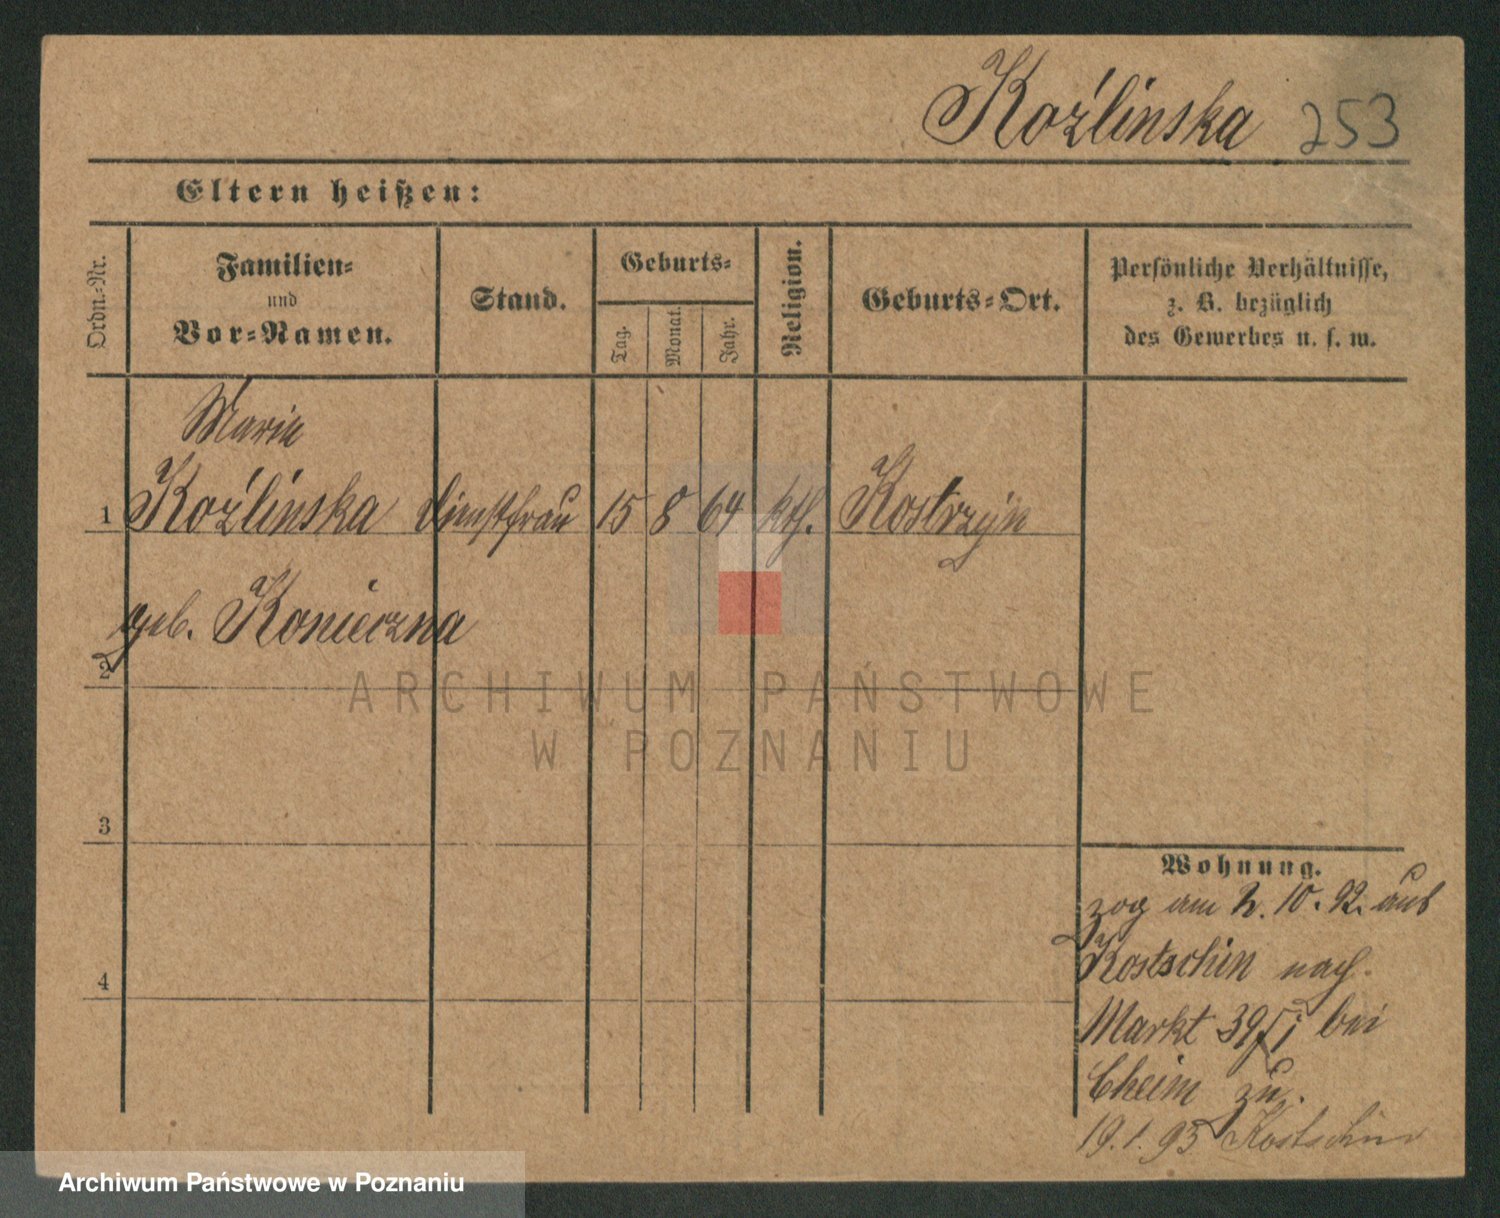 Koźlinska 253
Eltern heißen:
Ordn.-Nr.
Familien-
und
Vor-Namen.
Stand.
Geburts-
Tag.
Monat.
Jahr.
Religion.
Geburts-Ort.
Persönliche Verhältnisse,
z. B. bezüglich
des Gewerbes u. s. w.
Marie
1 Koźlinska Dienstfrau 15 8 64 kth. Kostrzyn
geb. Konieczna
2
ARCHIWUM PAŃSTWOWE
W POZNANIU
3
Wohnung.
zog am 2. 10. 92. aus
Kostschin nach
4
Markt 39 bei
Cheim zu.
19. 1. 93 Kostschin
Archiwum Państwowe w Poznaniu